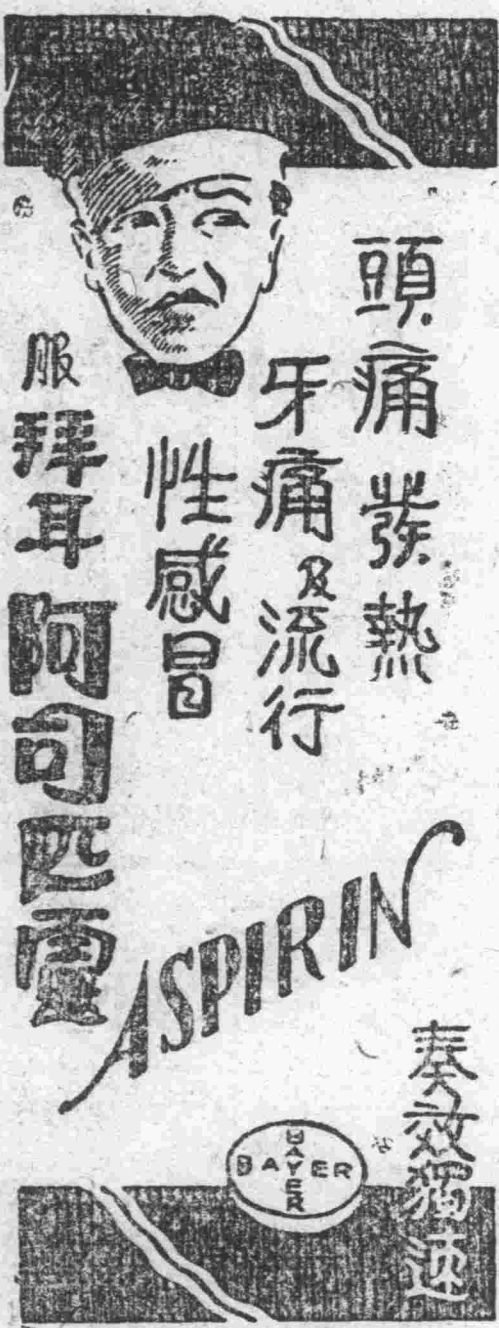 頭痛發熱
牙痛及流行
性感冒
服拜耳阿司匹靈
ASPIRIN
奏效獨速
BAYER
BAYER